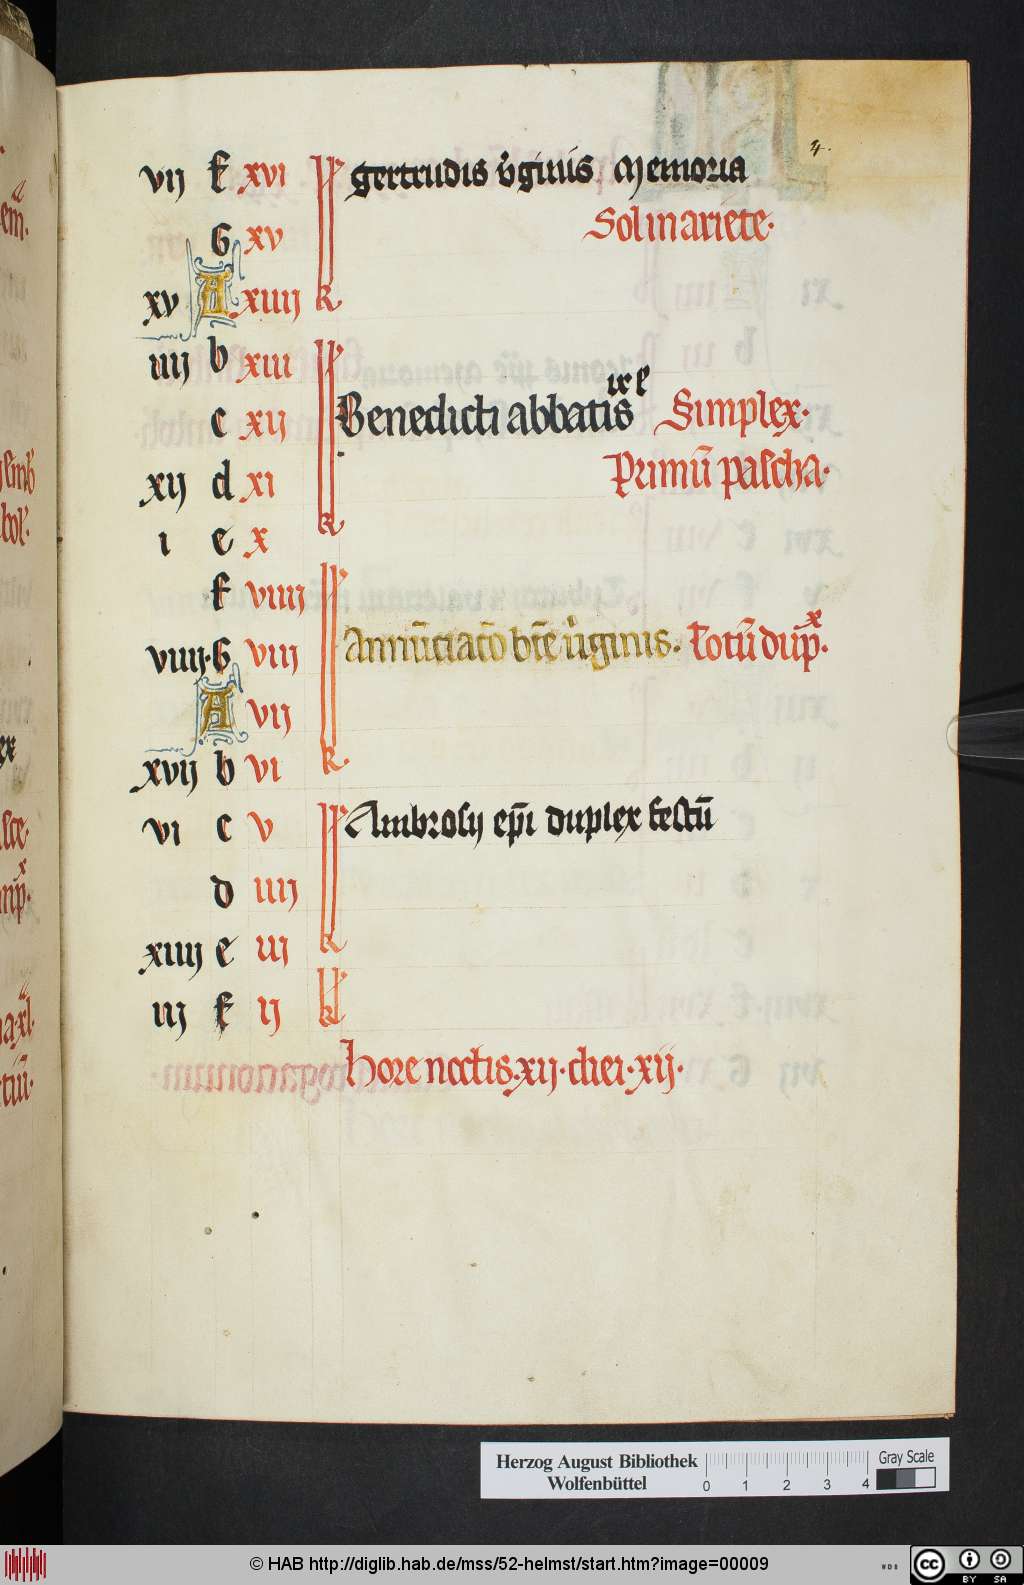 4.
vij f xvi k gertrudis v'ginis Memoria
G xv Sol in ariete·
xv A xiiij k
iiij b xiii k
c xij Benedicti abbatis ix l Simplex·
xij d xi Primū pascha·
i e x k
f viiij k
viiij· G viij Annūciac̄o btē v'ginis. totū dup̄x·
A vij
xvij b vi k·
vi c v k Ambrosij ep̄i duplex festū
d iiij
xiiij e iij k
iij f ij kl
hore noctis·xij·diei·xij·
Herzog August Bibliothek
Wolfenbüttel
0 1 2 3 4
Gray Scale
© HAB http://diglib.hab.de/mss/52-helmst/start.htm?image=00009
WDB
cc BY SA